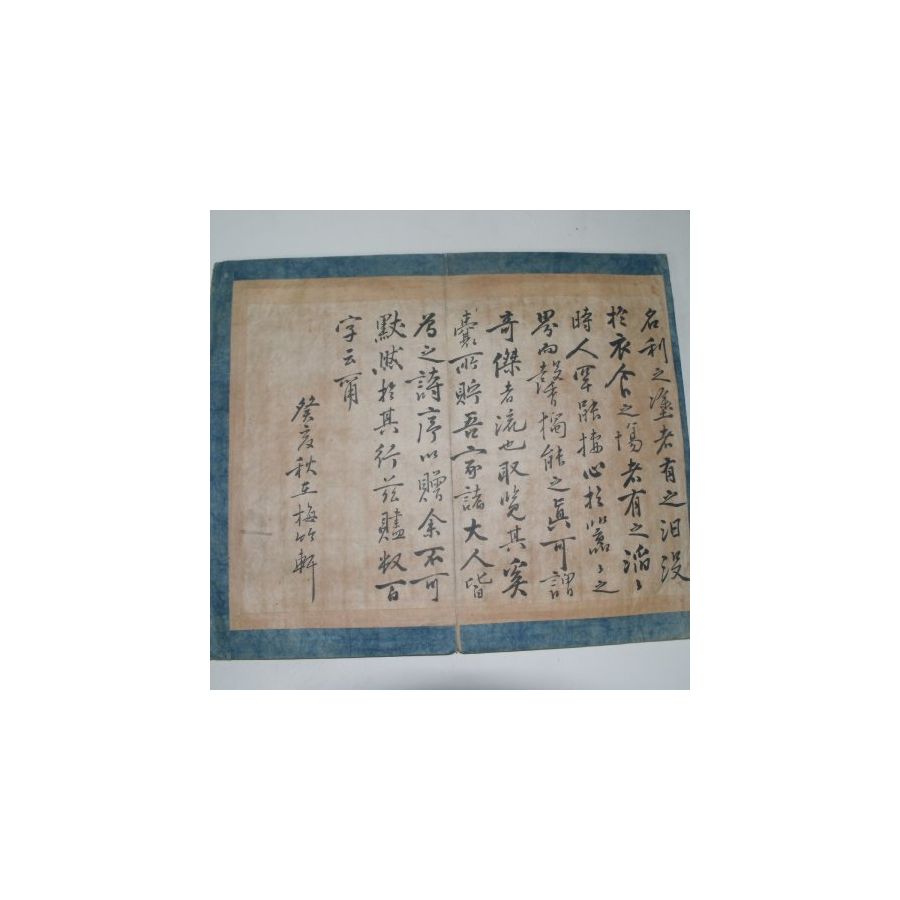 名利之塗者有之汨沒
於衣食之塲者有之滔〻
時人罕能棲心於
界而聲獨能之眞可謂
奇傑者流也取覽其奚
囊所貯吾家諸大人皆
爲之詩序以贈余不可
默然於其行玆贐數百
字云甫
癸亥秋在梅竹軒